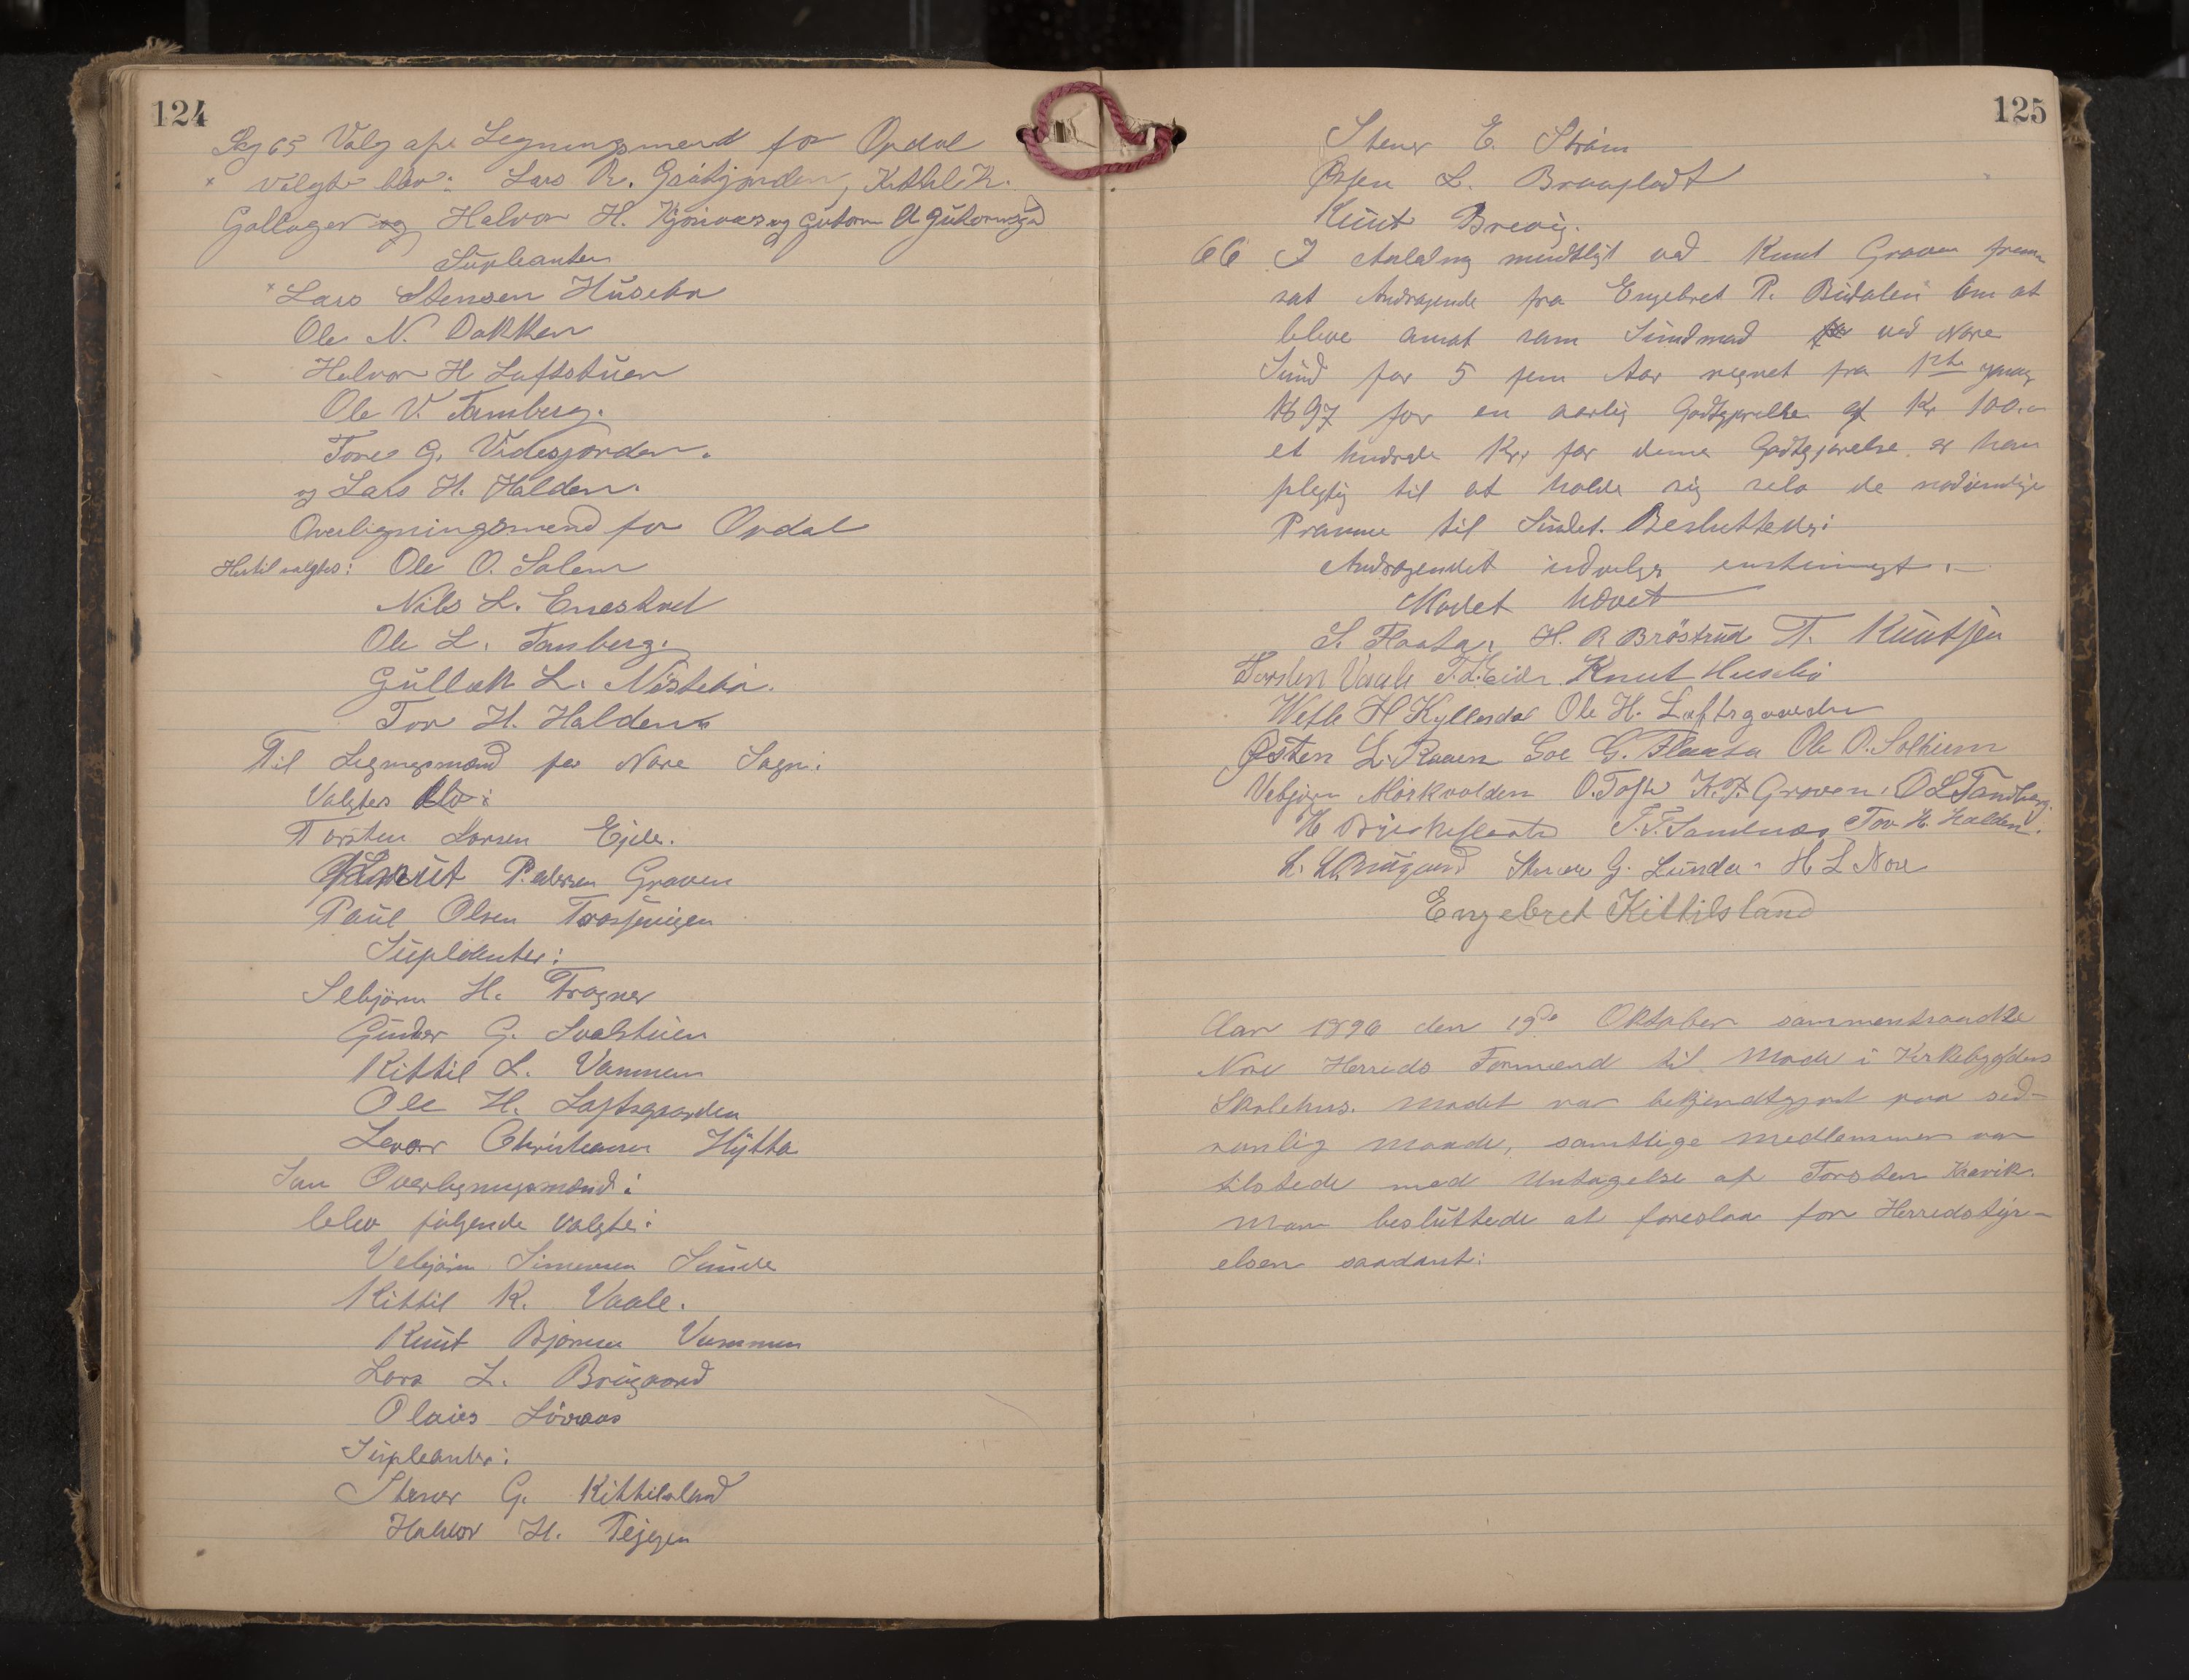 124
Sag 65 Valg af Legningsmend for Opdal
x valgte blev: Lars R. Gråtjønden, Kittil K.
Gallager og Halvor H. Kjønaas og Gutorm A Gutormsgd
Supleanter
x Lars Stensen Husebø
Ole N. Dokken
Halvor H Loftstuen
Ole V. Tamberg.
Tore G. Videsjorden.
og Lars H. Halden.
Overligningsmend for Opdal
Hertil valgtes: Ole O. Solem
Nils L. Enestvet
Ole L. Tamberg.
Gullek L. Nøstebø.
Tov H. Halden
Til Legningsmænd for Nore Sogn:
Valgtes blev:
Torsten Larsen Ejde.
Knut Pedersen Graven
Paul Olsen
Supleanter:
Sebjørn H. Frogner
Gunder G. Svalstuen
Kittil L. Vammen
Ole H. Loftsgaarden
Levor Christensen Hytta
Som Overlegningsmænd:
blev følgende valgte:
Vebjørn Simensen Sunde
Kittil K. Vaale.
Knut Bjørnsen Vammen
Lars L. Brugaard
Olaus Løvaas
Supleanter:
Stener G. Kittilsland
Halvor H. Tejgen
125
Stener E. Strøm
Østen L. Braafladt
Knut Brevig.
66 I Anledning mundtligt ved Knut Graven frem
sat Andragende fra Engebret P. Budalen om at
bleve ansat som Sundmand for ved Nore
Sund for 5 fem Aar regnet fra 1ste januar
1897 for en aarlig Godtgjørelse af Kr 100.00
et hundrede Kr, for denne Godtgjørelse er han
plegtig til at holde sig selv de nødvendige
Pramme til Sundet. Besluttedes:
Andragendet indvilges enstemmigt.
Mødet hævet
S. Flaata, H. R Brøstrud T. Knutsen
Torsten Vaale T. L. Eide Knut Husebø
Wetle H Kyllesdal Ole H. Loftsgaarden
Østen L. Raaen Goe G. Flaata Ole O. Solheim
Vebjørn Mørkvolden O. Tofte K. P. Graven, O L Tandberg.
H Bjerkeflaata T. T. Sandnæs Tov H. Halden.
L. L. Brugaard Stener G. Lunde H L Nore
Engebret Kittilsland
Aar 1896 den 19de Oktober sammentraadte
Nore Herreds Formænd til Møde i Kirkebygdens
Skolehus. Mødet var bekjendtgjort paa sed-
vanlig Maade, samtlige Medlemmer var
tilstede med Untagelse af Torsten Kravik.
Man besluttede at foreslaa for Herredstyr-
elsen saadant: